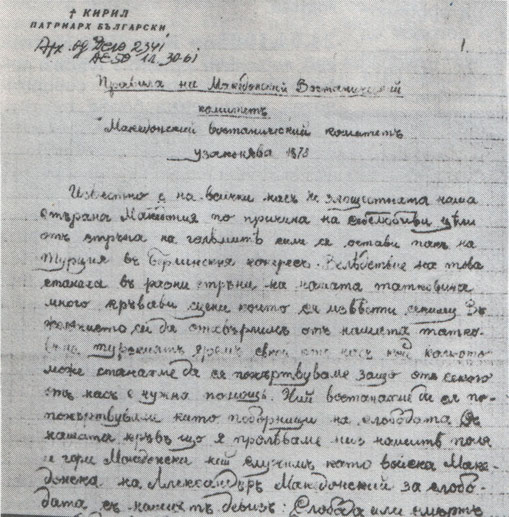 † КИРИЛ
ПАТРИАРХ БЪЛГАРСКИ
1.
Правила на Македонский Востанически
комитетъ
Македонский востанический комитетъ
узаконява 1878
Известно е на всички насъ че злощастната наша
страна Македония по причина на себелюбиви цели
отъ страна на големитѣ сили се остави пакъ на
Турция въ Берлинския конгресъ. Вследствие на това
станаха въ разни страни на нашата татковина
много кръвави сцени които са извести
да отхвърлимъ отъ нашата татко-
вина турскиятъ яремъ отъ насъ кой колкото
може станахме да се пожъртвуваме защо отъ секого
отъ насъ е нужно помощъ. Ний востанахме да се по-
пожъртвувме като поборници на слободата
нашата кръвъ що я проливаме низ нашитѣ поля
и гори Македонски ний служимъ като войска Маке-
донска на Александъръ Македонский за слобо-
дата съ нашиятъ девизъ: Слобода или смъртъ